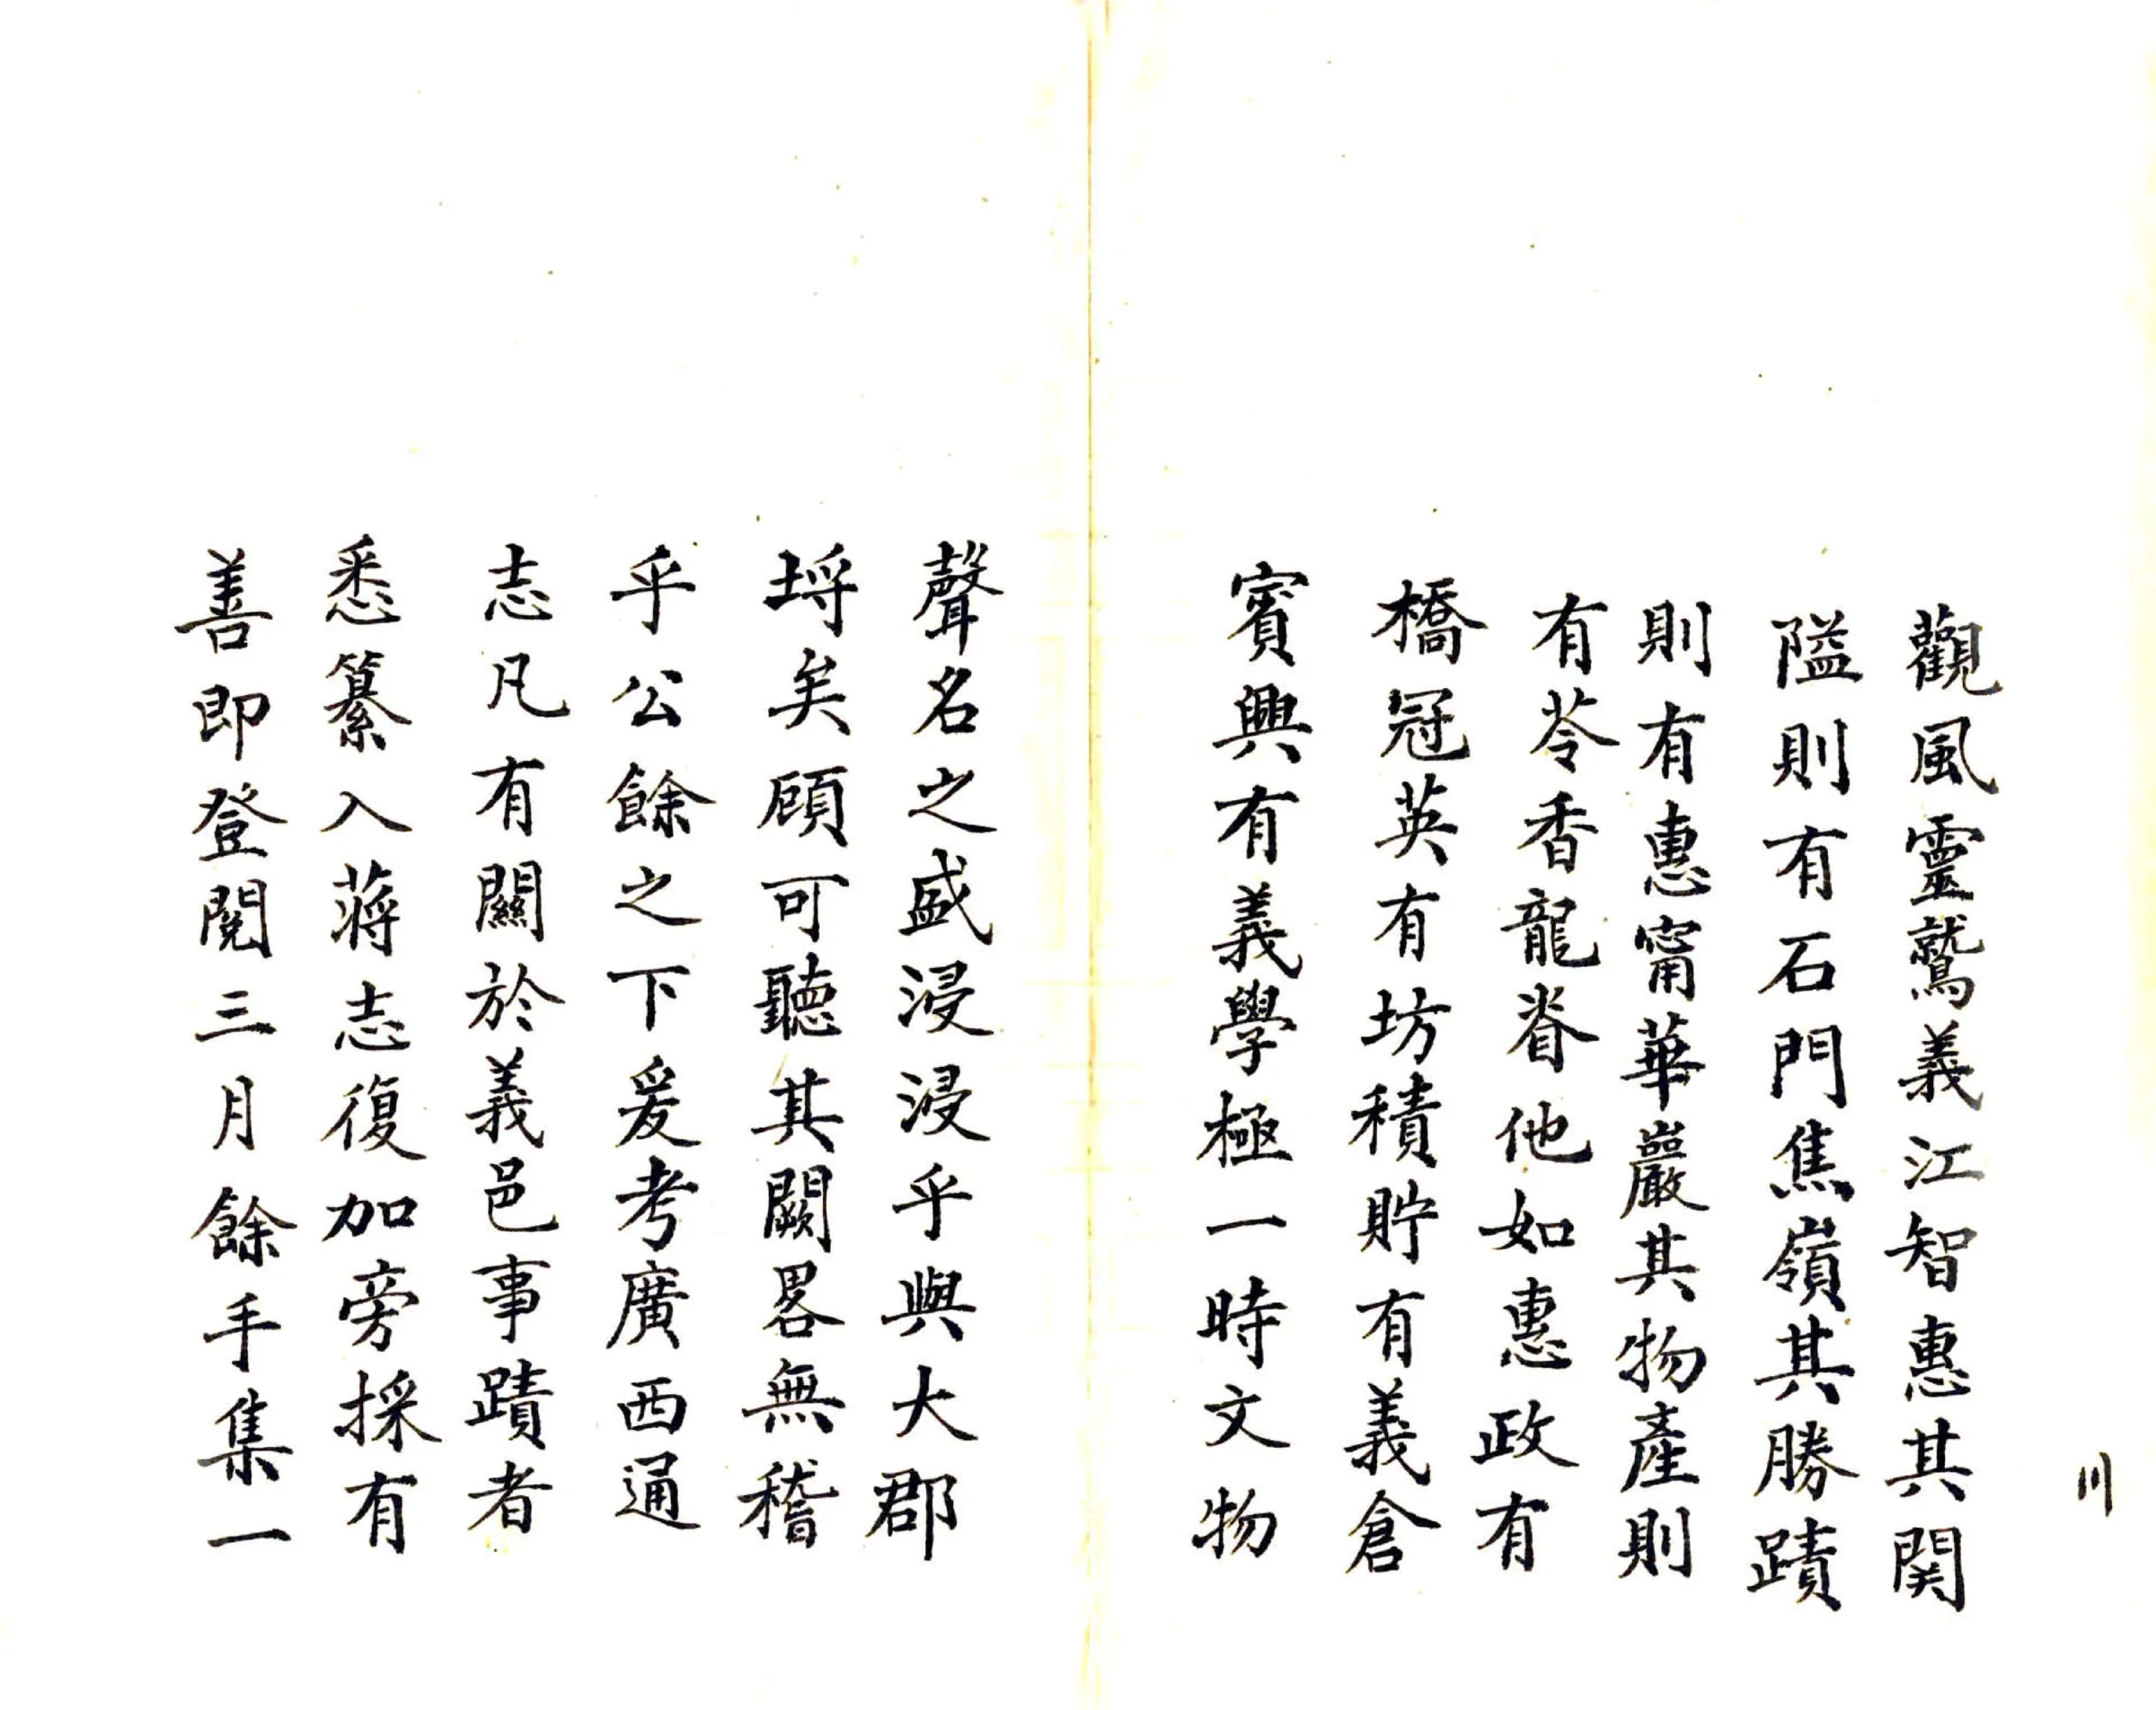 觀風靈鷲義江智惠其関
隘則有石門焦嶺其勝蹟
則有惠甯華嚴其物產則
有苓香龍脊他如惠政有
橋冠英有坊積貯有義倉
賓興有義學極一時文物
聲名之盛浸浸乎與大郡
埒矣顧可聽其闕畧無稽
乎公餘之下爰考廣西通
志凡有關於義邑事蹟者
悉纂入蔣志復加旁採有
善即登閱三月餘手集一
〣